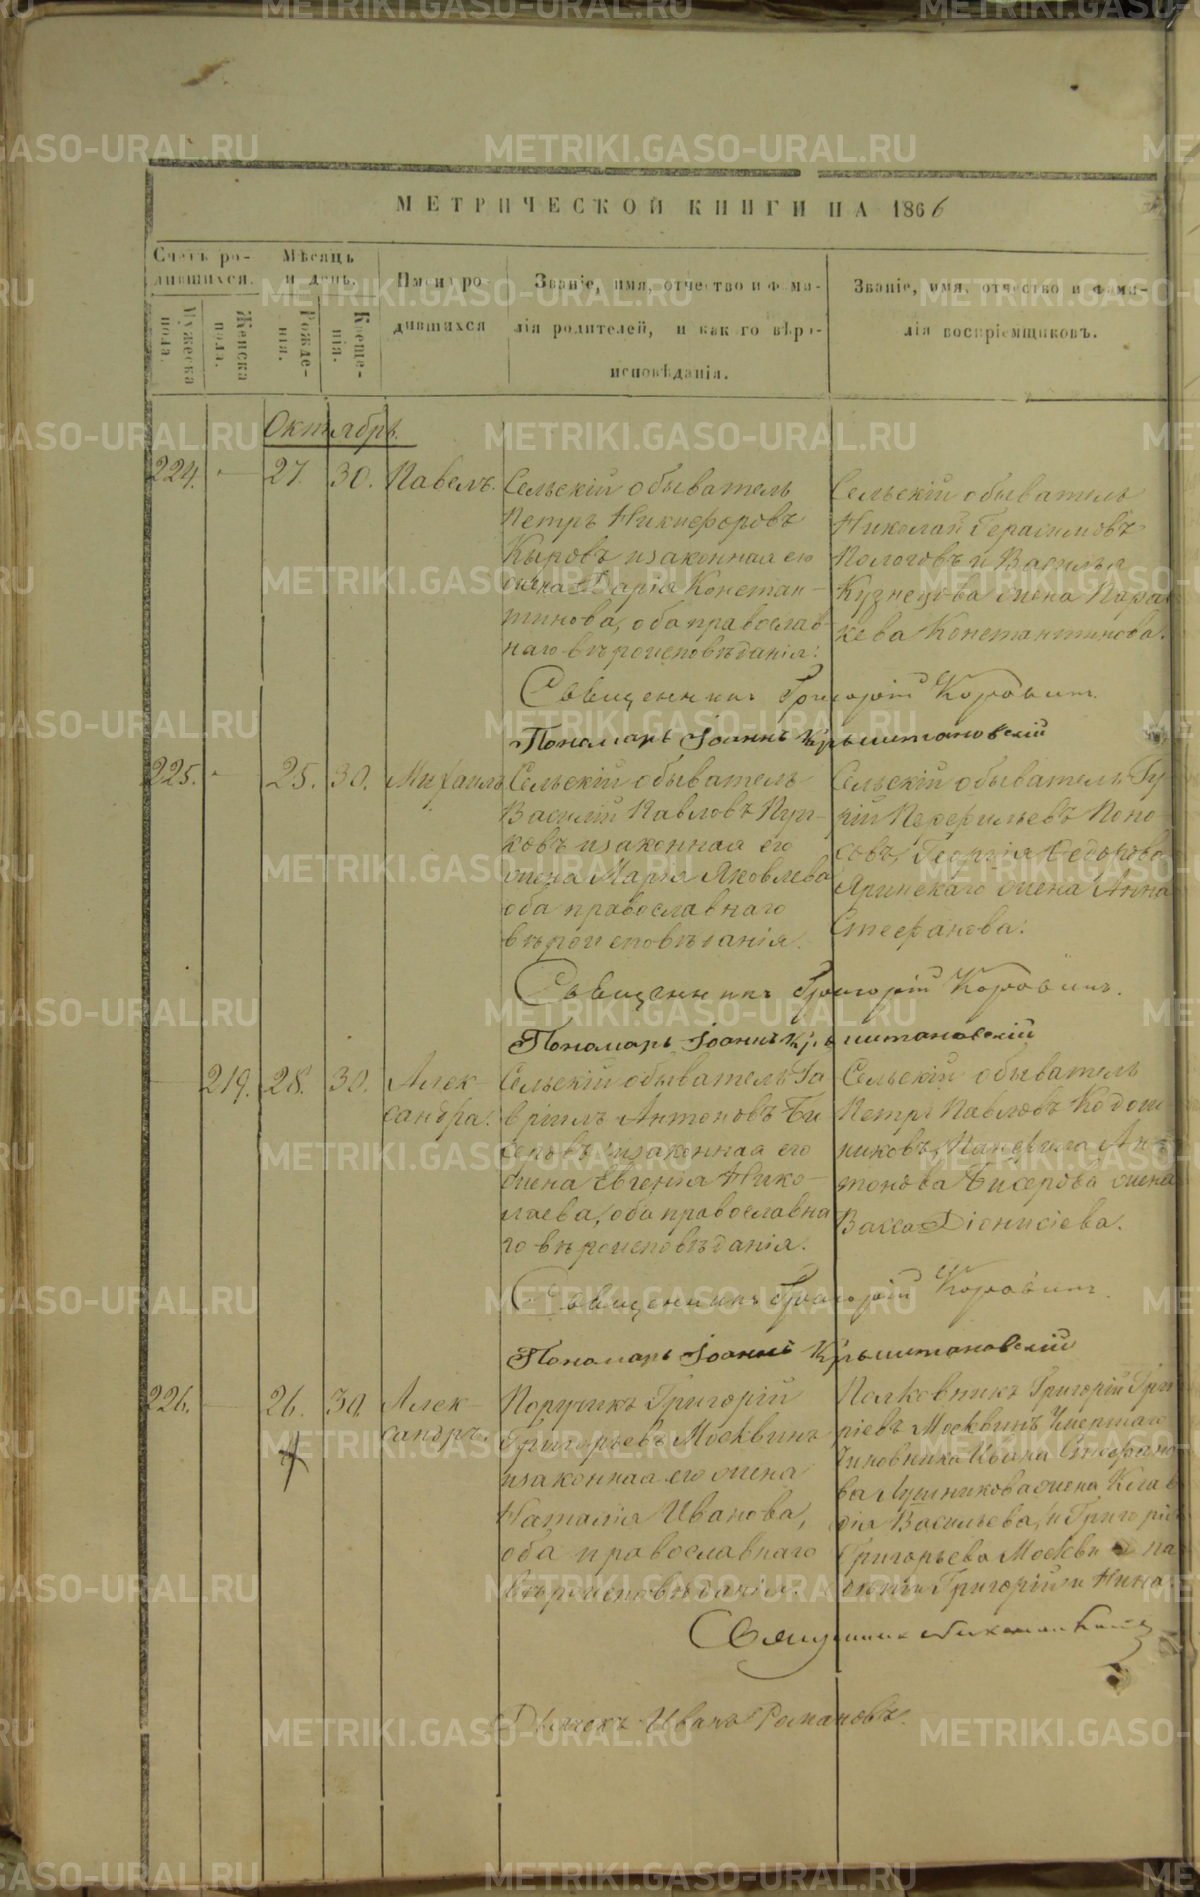 МЕТРИЧЕСКОЙ КНИГИ НА 1866
Счетъ ро-
дившихся.
Мѣсяцъ
и день.
Имена ро-
дившихся
Званіе, имя, отчество и фами-
лія родителей, и какого вѣро-
исповѣданія.
Званіе, имя, отчество и фами-
лія воспріемщиковъ.
Мужеска
пола.
Женска
пола.
Рожде-
нія.
Креще-
нія.
Октябрь.
224. 27. 30. Павелъ.
Сельскій обыватель
Петръ Никифоровъ
Кыровъ и законная его
жена Дарія Констан-
тинова, оба православ
наго вѣроисповѣданія:
Сельскій обыватель
Николай Герасимовъ
Пологовъ и Василья
Кузнецова жена Парас
кева Константинова.
Священникъ Григорій Коровинъ.
Пономарь Іоаннъ Крыштановскій
225. 25. 30. Михаилъ
Сельскій обыватель
Василій Павловъ Пуп-
ковъ и законная его
жена Марія Яковлева
оба православнаго
вѣроисповѣданія.
Сельскій обыватель
Перфильевъ Поно
совъ, Георгія Федорова
Яринскаго жена Анна
Стефанова.
Священникъ Григорій Коровинъ.
Пономарь Іоаннъ Крыштановскій
219. 28. 30. Алек
сандра.
Сельскій обыватель Га
вріилъ Антоновъ Би
серовъ и законная его
жена Евгенія Нико-
лаева, оба православна
го вѣроисповѣданія.
Сельскій обыватель
Петръ Павловъ
Панфила Ан
тонова Бисерова жена
Васса Діонисіева.
Священникъ Григорій Коровинъ.
Пономарь Іоаннъ Крыштановскій
226. 26. 30. Алек-
сандръ.
Поручикъ Григорій
Григорьевъ Москвинъ
и законная его жена
Наталія Иванова,
оба православнаго
вѣроисповѣданія.
Полковникъ Григорій Григо
ріевъ Москвинъ Умершаго
Чиновника Ивана Стефано
ва Лушникова жена Клав
дія Васильева, и Григорія
Григорьева
Григорій и Нина.
Священникъ
Дьячекъ Иванъ Романовъ.
METRIKI.GASO-URAL.RU